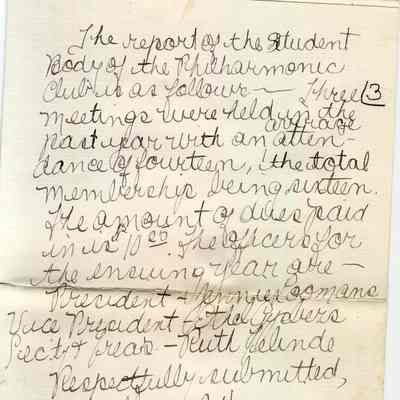 The report of the Student
Body of the Philharmonic
Club is as follows — Three 3
meetings were held in the
average
past year with an atten-
dance of fourteen, the total
membership being sixteen.
The amount of dues paid
in is 10 00. The officers for
the ensuing year are —
President - Jennie
Vice President -
Sec't & Treas - Ruth
Respectfully submitted,